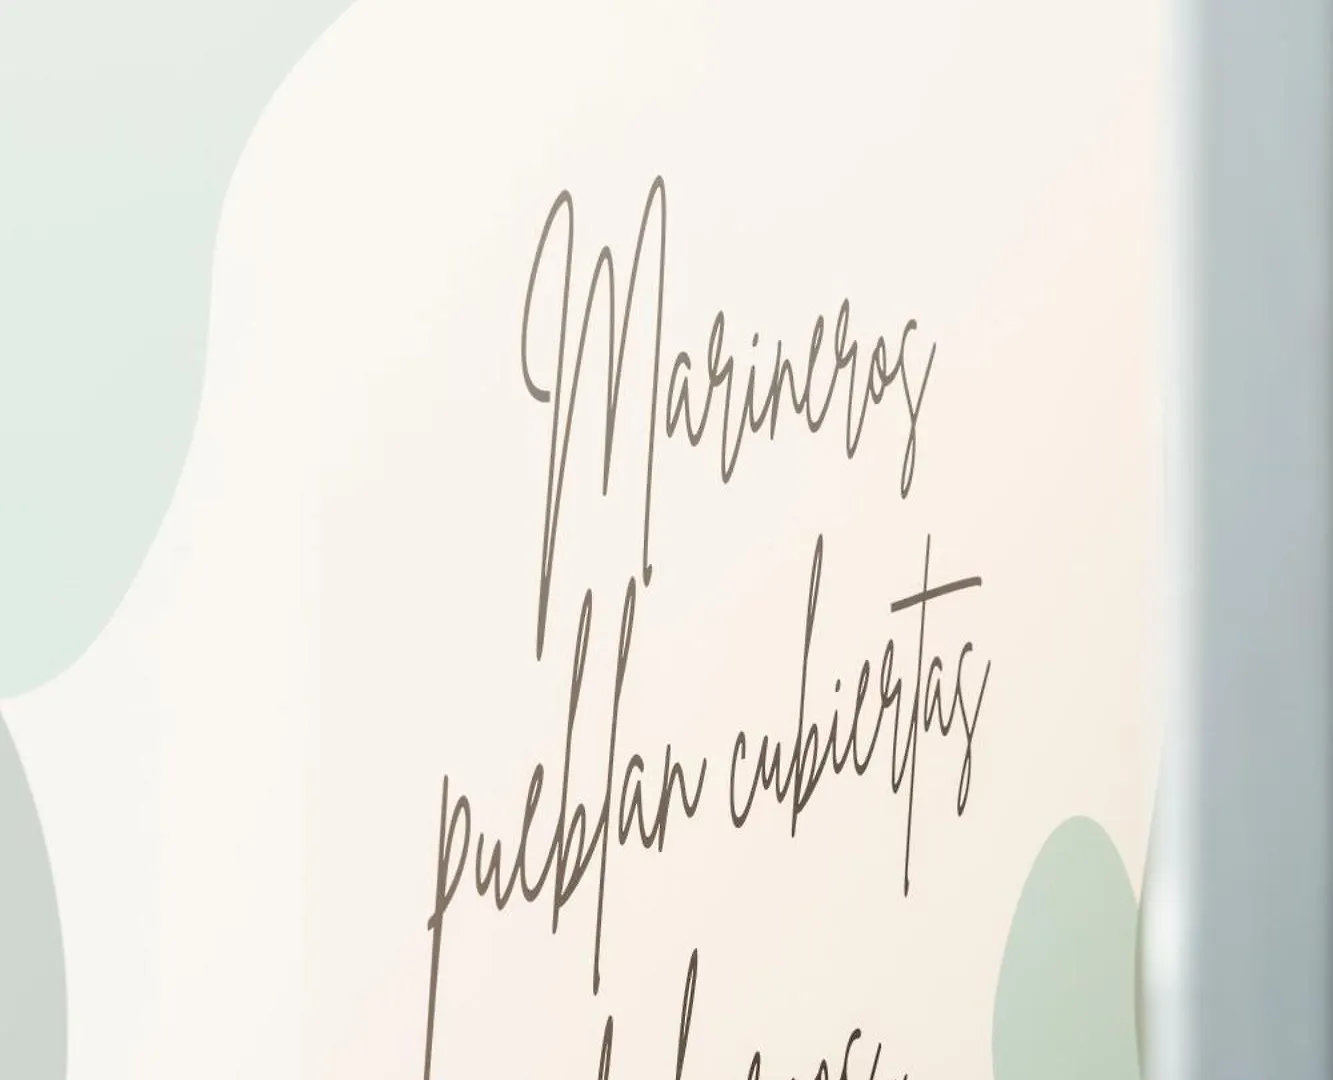 Marineros
pueblan cubiertas